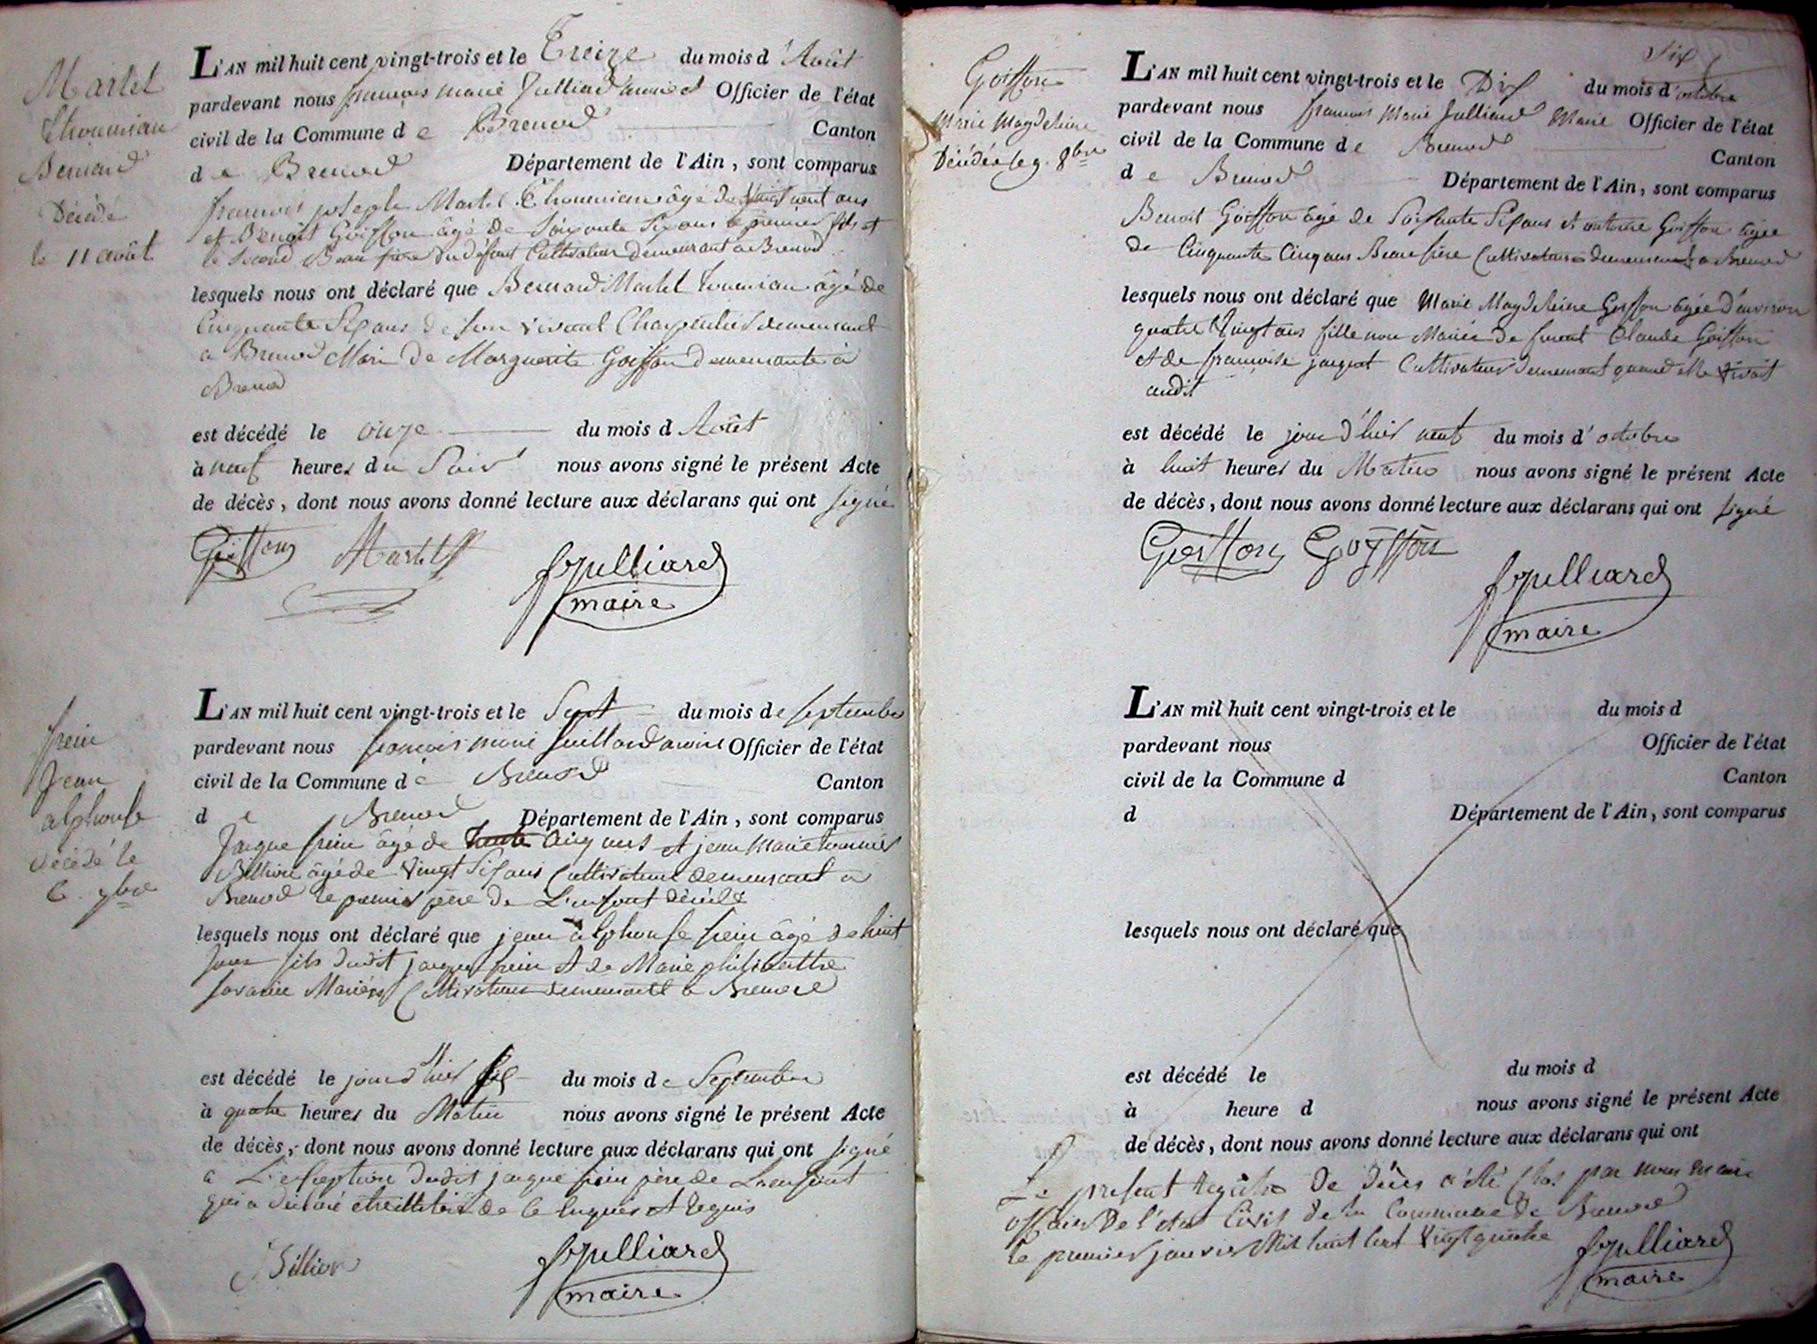 Martel
Thoumian
Bernard
Décédé
le 11 août
L'AN mil huit cent vingt-trois et le Treize du mois d'Août
pardevant nous françois marie Julliard maire Officier de l'état
civil de la Commune de Brenod Canton
de Brenod Département de l'Ain, sont comparus
françois joseph Martel Thoumian âgé de vingt neuf ans
et Benoit Goiffon âgé de Soixante Six ans le premier fils et
le second Beau frère du défunt Cultivateurs demeurant à Brenod
lesquels nous ont déclaré que Bernard Martel toumian âgé de
Cinquante Six ans de son vivant Charpentier demeurant
a Brenod Mari de Marguerite Goiffon demeurante à
Brenod
est décédé le onze du mois d Août
à neuf heures du Soir nous avons signé le présent Acte
de décès, dont nous avons donné lecture aux déclarans qui ont signé
Goiffon Martel
fsJulliard
maire
frein
Jean
alphonse
décédé le
6. 7bre
L'AN mil huit cent vingt-trois et le Sept du mois de septembre
pardevant nous françois marie Juillard maire Officier de l'état
civil de la Commune de Brenod Canton
de Brenod Département de l'Ain, sont comparus
Jaque frein âgé de trente cinq ans et jean Marie tournier
Billion âgé de vingt Six ans Cultivateurs demeurant a
Brenod le premier père de L'enfant décédé
lesquels nous ont déclaré que jean alphonse frein âgé de huit
jours fils dudit jaque frein et de Marie philiberthe
Savarin Mariés Cultivateurs demeurant a Brenod
est décédé le jour d'hier six du mois de Septembre
à quatre heures du Matin nous avons signé le présent Acte
de décès, dont nous avons donné lecture aux déclarans qui ont signé
a L'exception dudit jaque frein père de L'enfant
qui a déclaré être illitéré de ce enquis et requis
Billion
fsJulliard
maire
Six
Goiffon
Marie Magdeleine
Décédée le 9. 8bre
L'AN mil huit cent vingt-trois et le Dix du mois d'octobre
pardevant nous françois Marie Julliard Maire Officier de l'état
civil de la Commune de Brenod Canton
de Brenod Département de l'Ain, sont comparus
Benoit Goiffon âgé de Soixante Six ans et antoine Goiffon âgée
de Cinquante Cinq ans Beau frère Cultivateurs demeurant a Brenod
lesquels nous ont déclaré que Marie Magdeleine Goiffon âgée d'environ
quatre Vingt ans fille non Mariée de furent Claude Goiffon
et de françoise jarquet Cultivateurs demeurant quand elle Vivait
audit
est décédé le jour d'hier neuf du mois d'octobre
à huit heures du Matin nous avons signé le présent Acte
de décès, dont nous avons donné lecture aux déclarans qui ont signé
Goiffon Goyffon
fsJulliard
maire
L'AN mil huit cent vingt-trois et le du mois d
pardevant nous Officier de l'état
civil de la Commune d Canton
d Département de l'Ain, sont comparus
lesquels nous ont déclaré que
est décédé le du mois d
à heure d nous avons signé le présent Acte
de décès, dont nous avons donné lecture aux déclarans qui ont
Le présent registre de décès a été clos par nous maire
officier de l'état Civil de la Commune de Brenod
le premier janvier Mil huit cent vingt quatre
fsJulliard
maire